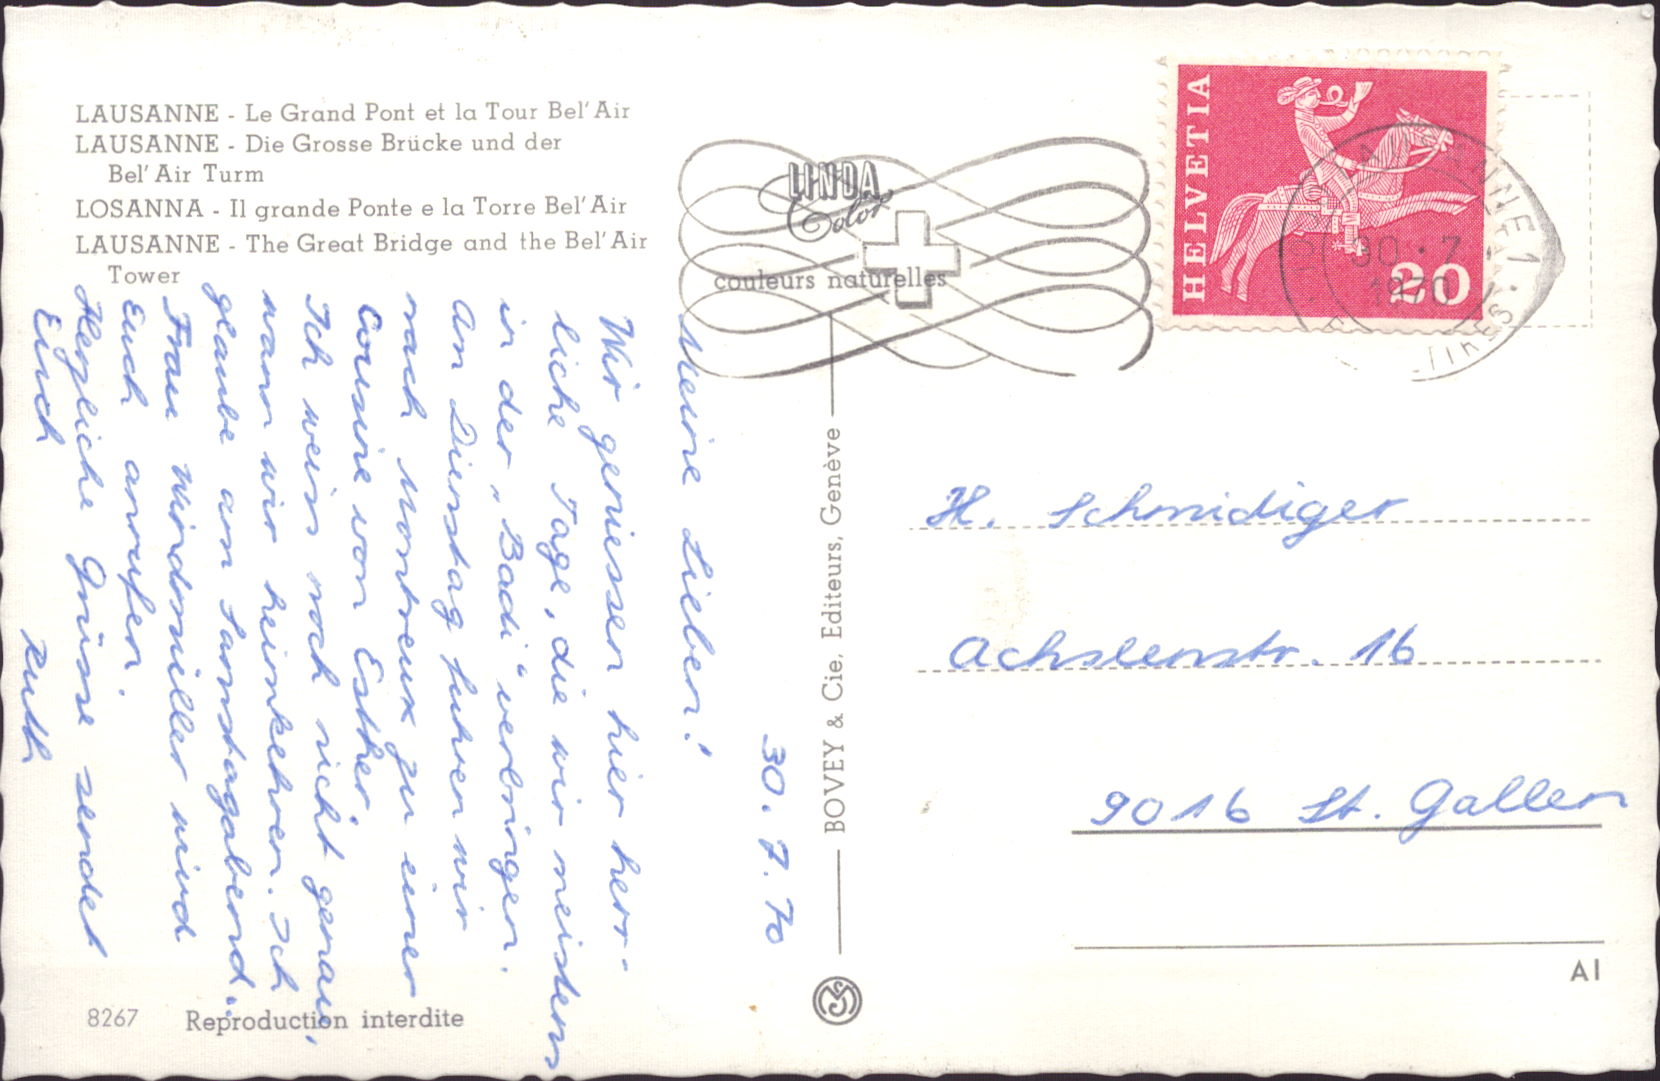 LAUSANNE - Le Grand Pont et la Tour Bel'Air
LAUSANNE - Die Grosse Brücke und der
Bel'Air Turm
LOSANNA - Il grande Ponte e la Torre Bel'Air
LAUSANNE - The Great Bridge and the Bel'Air
Tower
LINDA
Color
couleurs naturelles
HELVETIA
20
30.7.
1970
30.7.70
Meine Lieben!
Wir geniessen hier herr-
liche Tage, die wir meistens
in der „Badi“ verbringen.
Am Dienstag fuhren wir
nach Montreux zu einer
Cousine von Esther.
Ich weiss noch nicht genau,
wann wir heimkehren. Ich
glaube am Samstagabend.
Frau Windmiller wird
Euch anrufen.
Herzliche Grüsse sendet
Euch
Ruth
BOVEY & Cie, Editeurs, Genève
H. Schmidiger
Achslenstr. 16
9016 St. Gallen
A1
8267 Reproduction interdite